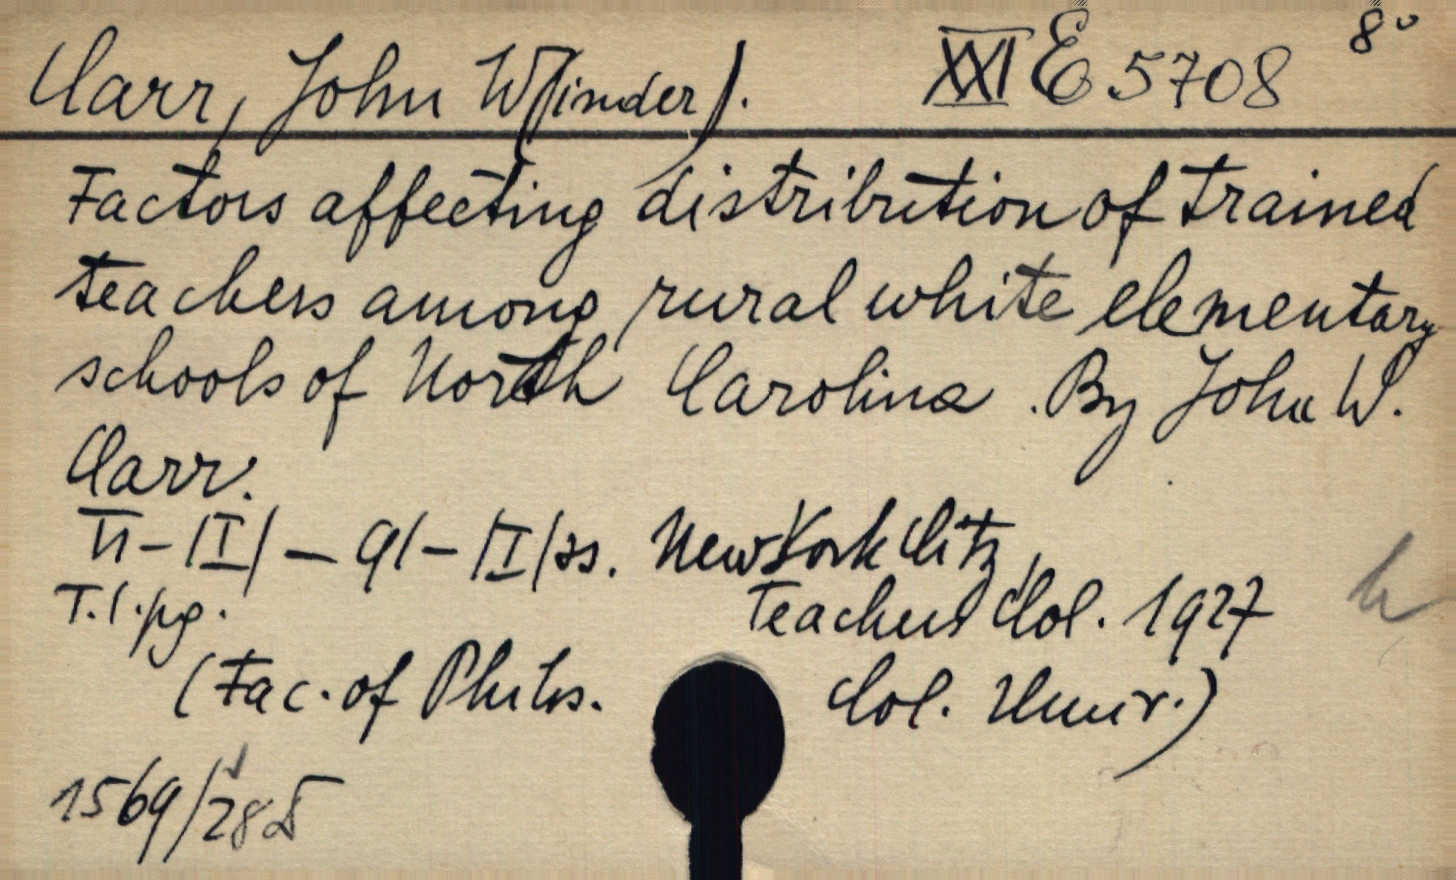 Carr, John W(inder). XXI E 5708 8°
Factors affecting distribution of trained
teachers among rural white elementary
schools of North Carolina. By John W.
Carr.
VI-/I/ — 91-/I/ss. New York City,
T.l.pg. Teachers Col. 1927
(Fac. of Philos. Col. Univ.)
1569/28